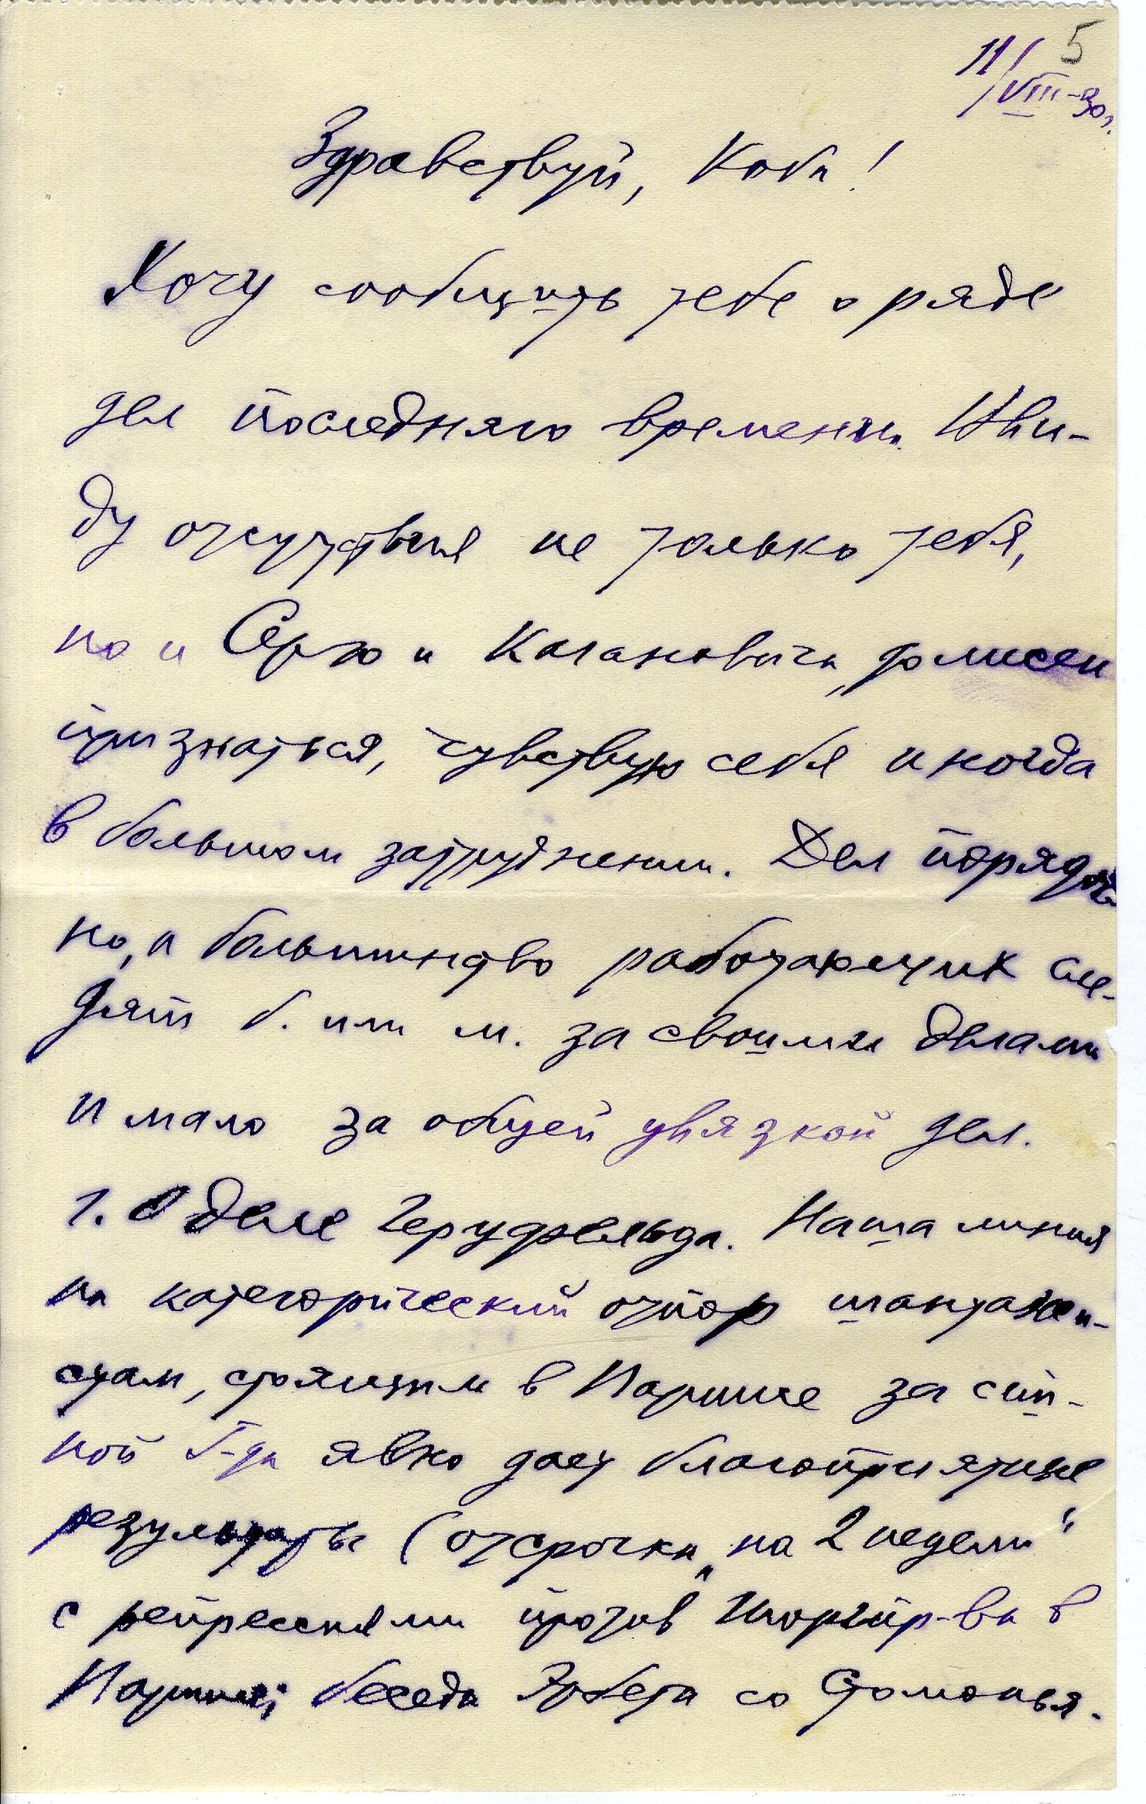 5
11/VIII-30 г.
Здравствуй, Коба!
Хочу сообщить тебе о ряде
дел последняго времени. Вви-
ду отсутствия не только тебя,
но и Серго и Кагановича, должен
признаться, чувствую себя иногда
в большом затруднении. Дел порядоч-
но, а большинство работающих сле-
дят б. или м. за своими делами
и мало за общей увязкой дел.
1. О деле Герцфельда. Наша линия
на категорический отпор шантажи-
стам, стоящим в Париже за спи-
ной Г-да явно дает благоприятные
результаты (отсрочка „на 2 недели"
с репрессиями против Инторгпр-ва в
Париже; беседа Эрбета со Стомонья-